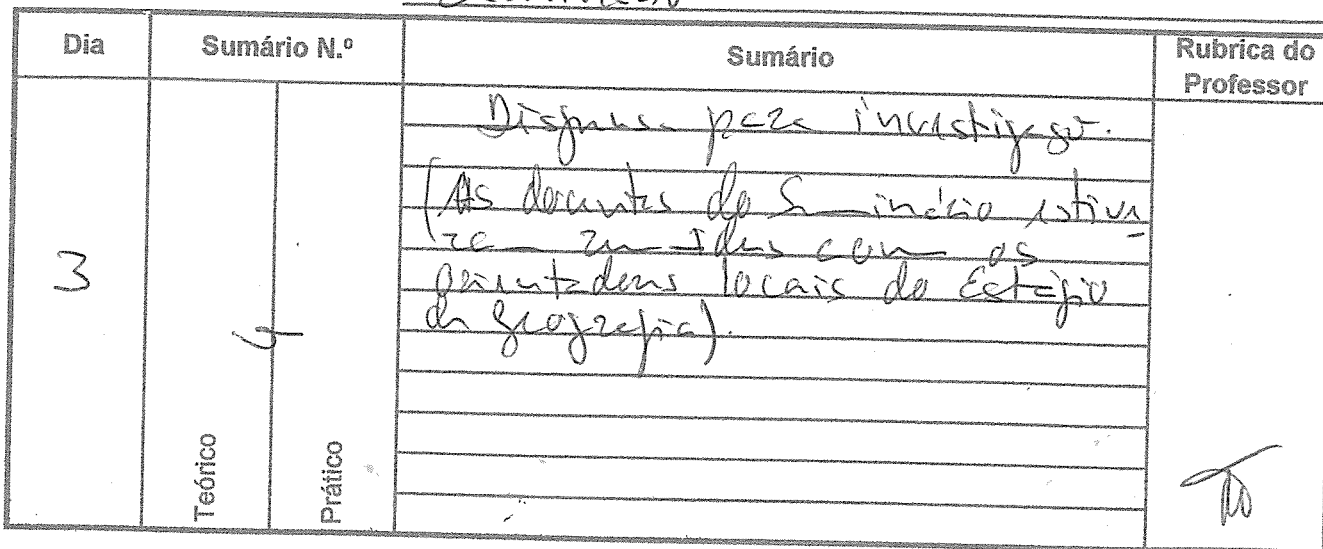 Dia
Sumário N.º
Sumário
Rubrica do
Professor
3
Teórico
Prático
Dispensa para investigação.
(As docentes do Seminário estive-
ram reunidas com os
orientadores locais do Estágio
de Geografia).